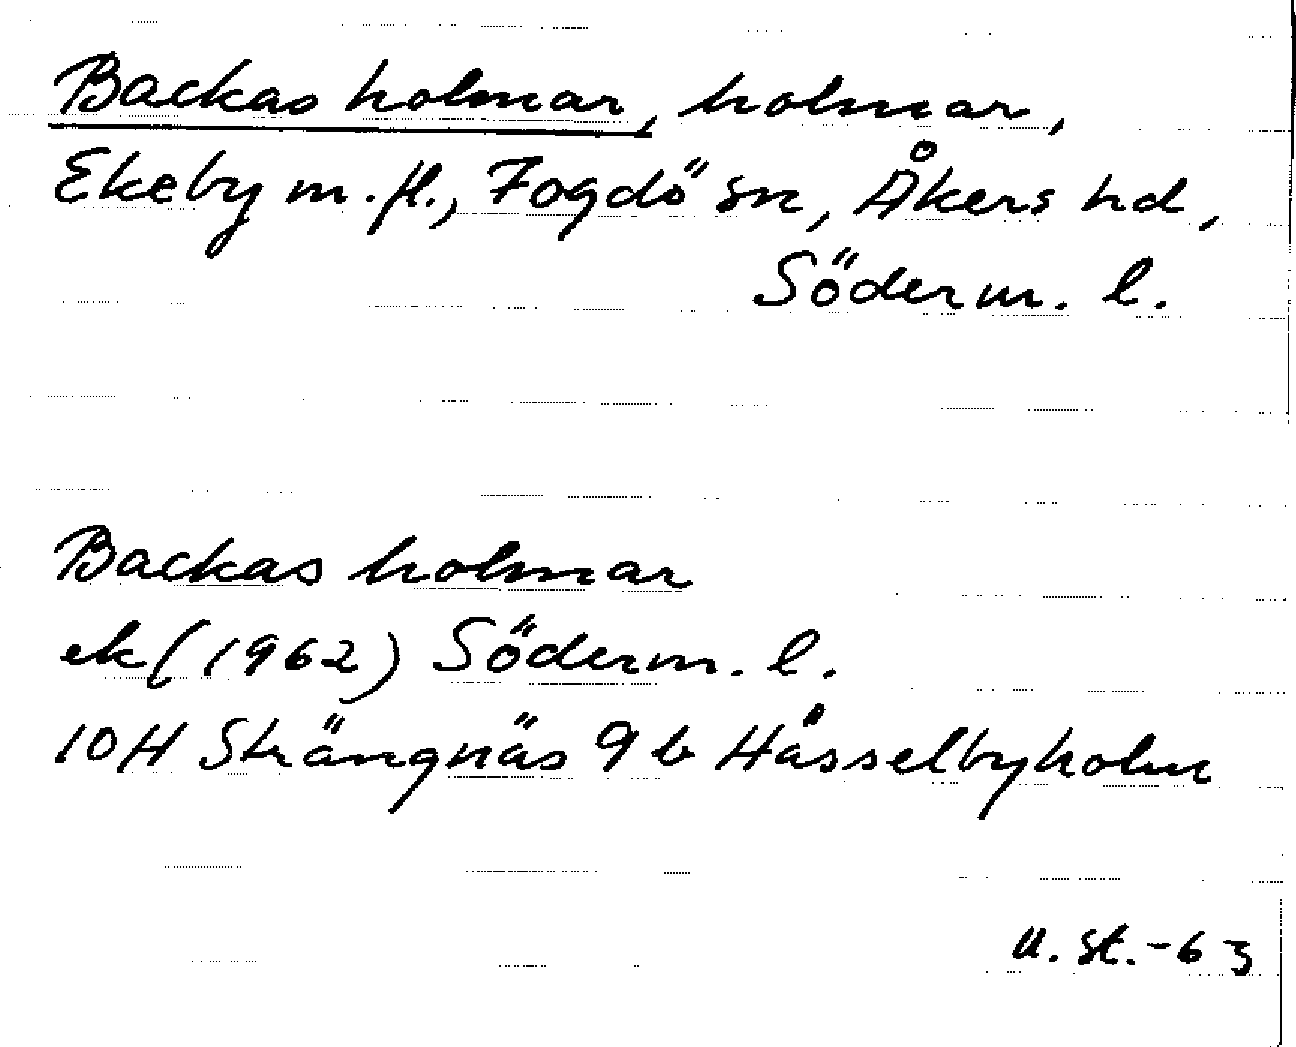 Backas holmar, holmar,
Ekeby m.fl., Fogdö sn, Åkers hd,
Söderm. l.
Backas holmar
ek (1962) Söderm. l.
10H Strängnäs 9b Hässelbyholm
U. St. -63